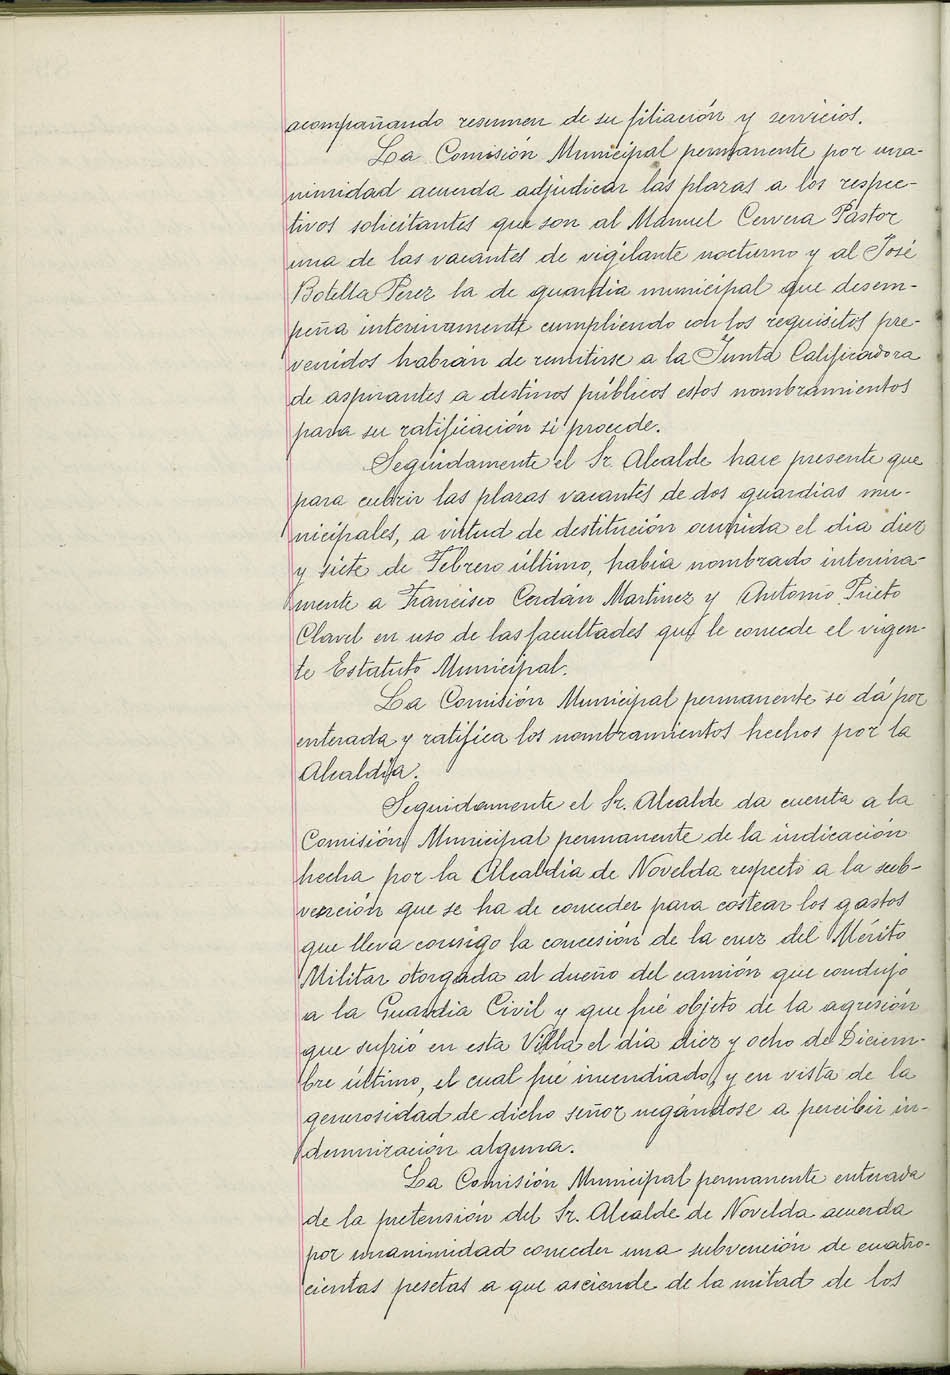 acompañando resumen de su filiación y servicios.
La Comisión Municipal permanente por una-
nimidad acuerda adjudicar las plazas a los respec-
tivos solicitantes que son al Manuel Cervera Pastor
una de las vacantes de vigilante nocturno y al José
Botella Perez la de guardia municipal que desem-
peña interinamente cumpliendo con los requisitos pre-
venidos habrán de remitirse a la Junta Calificadora
de aspirantes a destinos públicos estos nombramientos
para su ratificación si procede.
Seguidamente el Sr. Alcalde hace presente que
para cubrir las plazas vacantes de dos guardias mu-
nicipales, a virtud de destitución ocurrida el dia diez
y siete de Febrero último, había nombrado interina-
mente a Francisco Cerdán Martinez y Antonio Prieto
Clavel en uso de las facultades que le concede el vigen-
te Estatuto Municipal.
La Comisión Municipal permanente se dá por
enterada y ratifica los nombramientos hechos por la
Alcaldía.
Seguidamente el Sr. Alcalde da cuenta a la
Comisión Municipal permanente de la indicación
hecha por la Alcaldia de Novelda respecto a la sub-
vención que se ha de conceder para costear los gastos
que lleva consigo la concesión de la cruz del Mérito
Militar otorgada al dueño del camión que condujo
a la Guardia Civil y que fué objeto de la agresión
que sufrió en esta Villa el día diez y ocho de Diciem-
bre último, el cual fué incendiado, y en vista de la
generosidad de dicho señor negándose a percibir in-
demnización alguna.
La Comisión Municipal permanente enterada
de la pretensión del Sr. Alcalde de Novelda acuerda
por unanimidad conceder una subvención de cuatro-
cientas pesetas a que asciende de la mitad de los